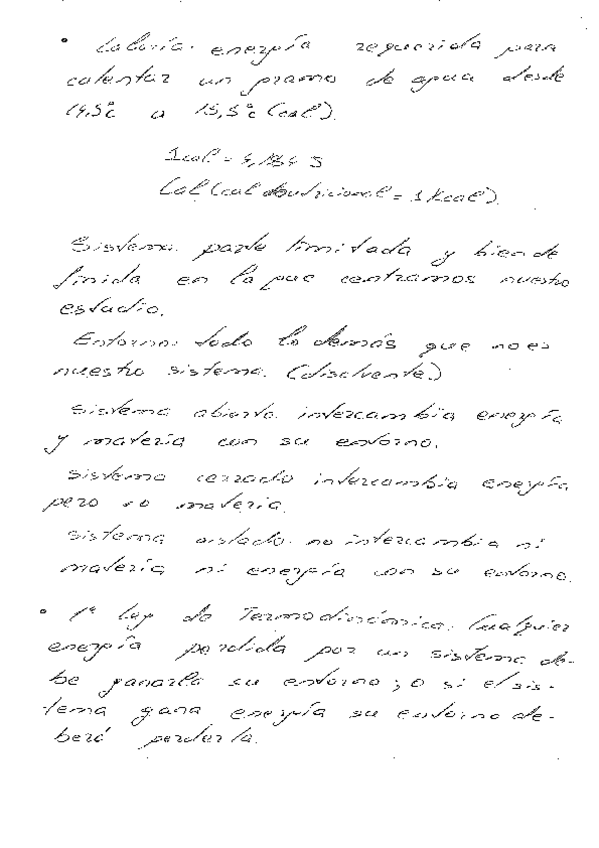 • Caloría: energía requerida para
calentar un gramo de agua desde
14,5°C a 15,5°C (cal).
1 cal = 4,184 J
Cal (cal nutricional = 1 Kcal).
Sistema: parte limitada y bien de
finida en la que centramos nuestro
estudio.
Entorno: todo lo demás que no es
nuestro sistema. (disolvente)
sistema abierto: intercambia energía
y materia con su entorno.
sistema cerrado intercambia energía
pero no materia.
sistema aislado: no intercambia ni
materia ni energía con su entorno.
• 1ª Ley de Termodinámica: Cualquier
energía perdida por un sistema de-
be ganarla su entorno; o si el sis-
tema gana energía su entorno de-
berá perderla.